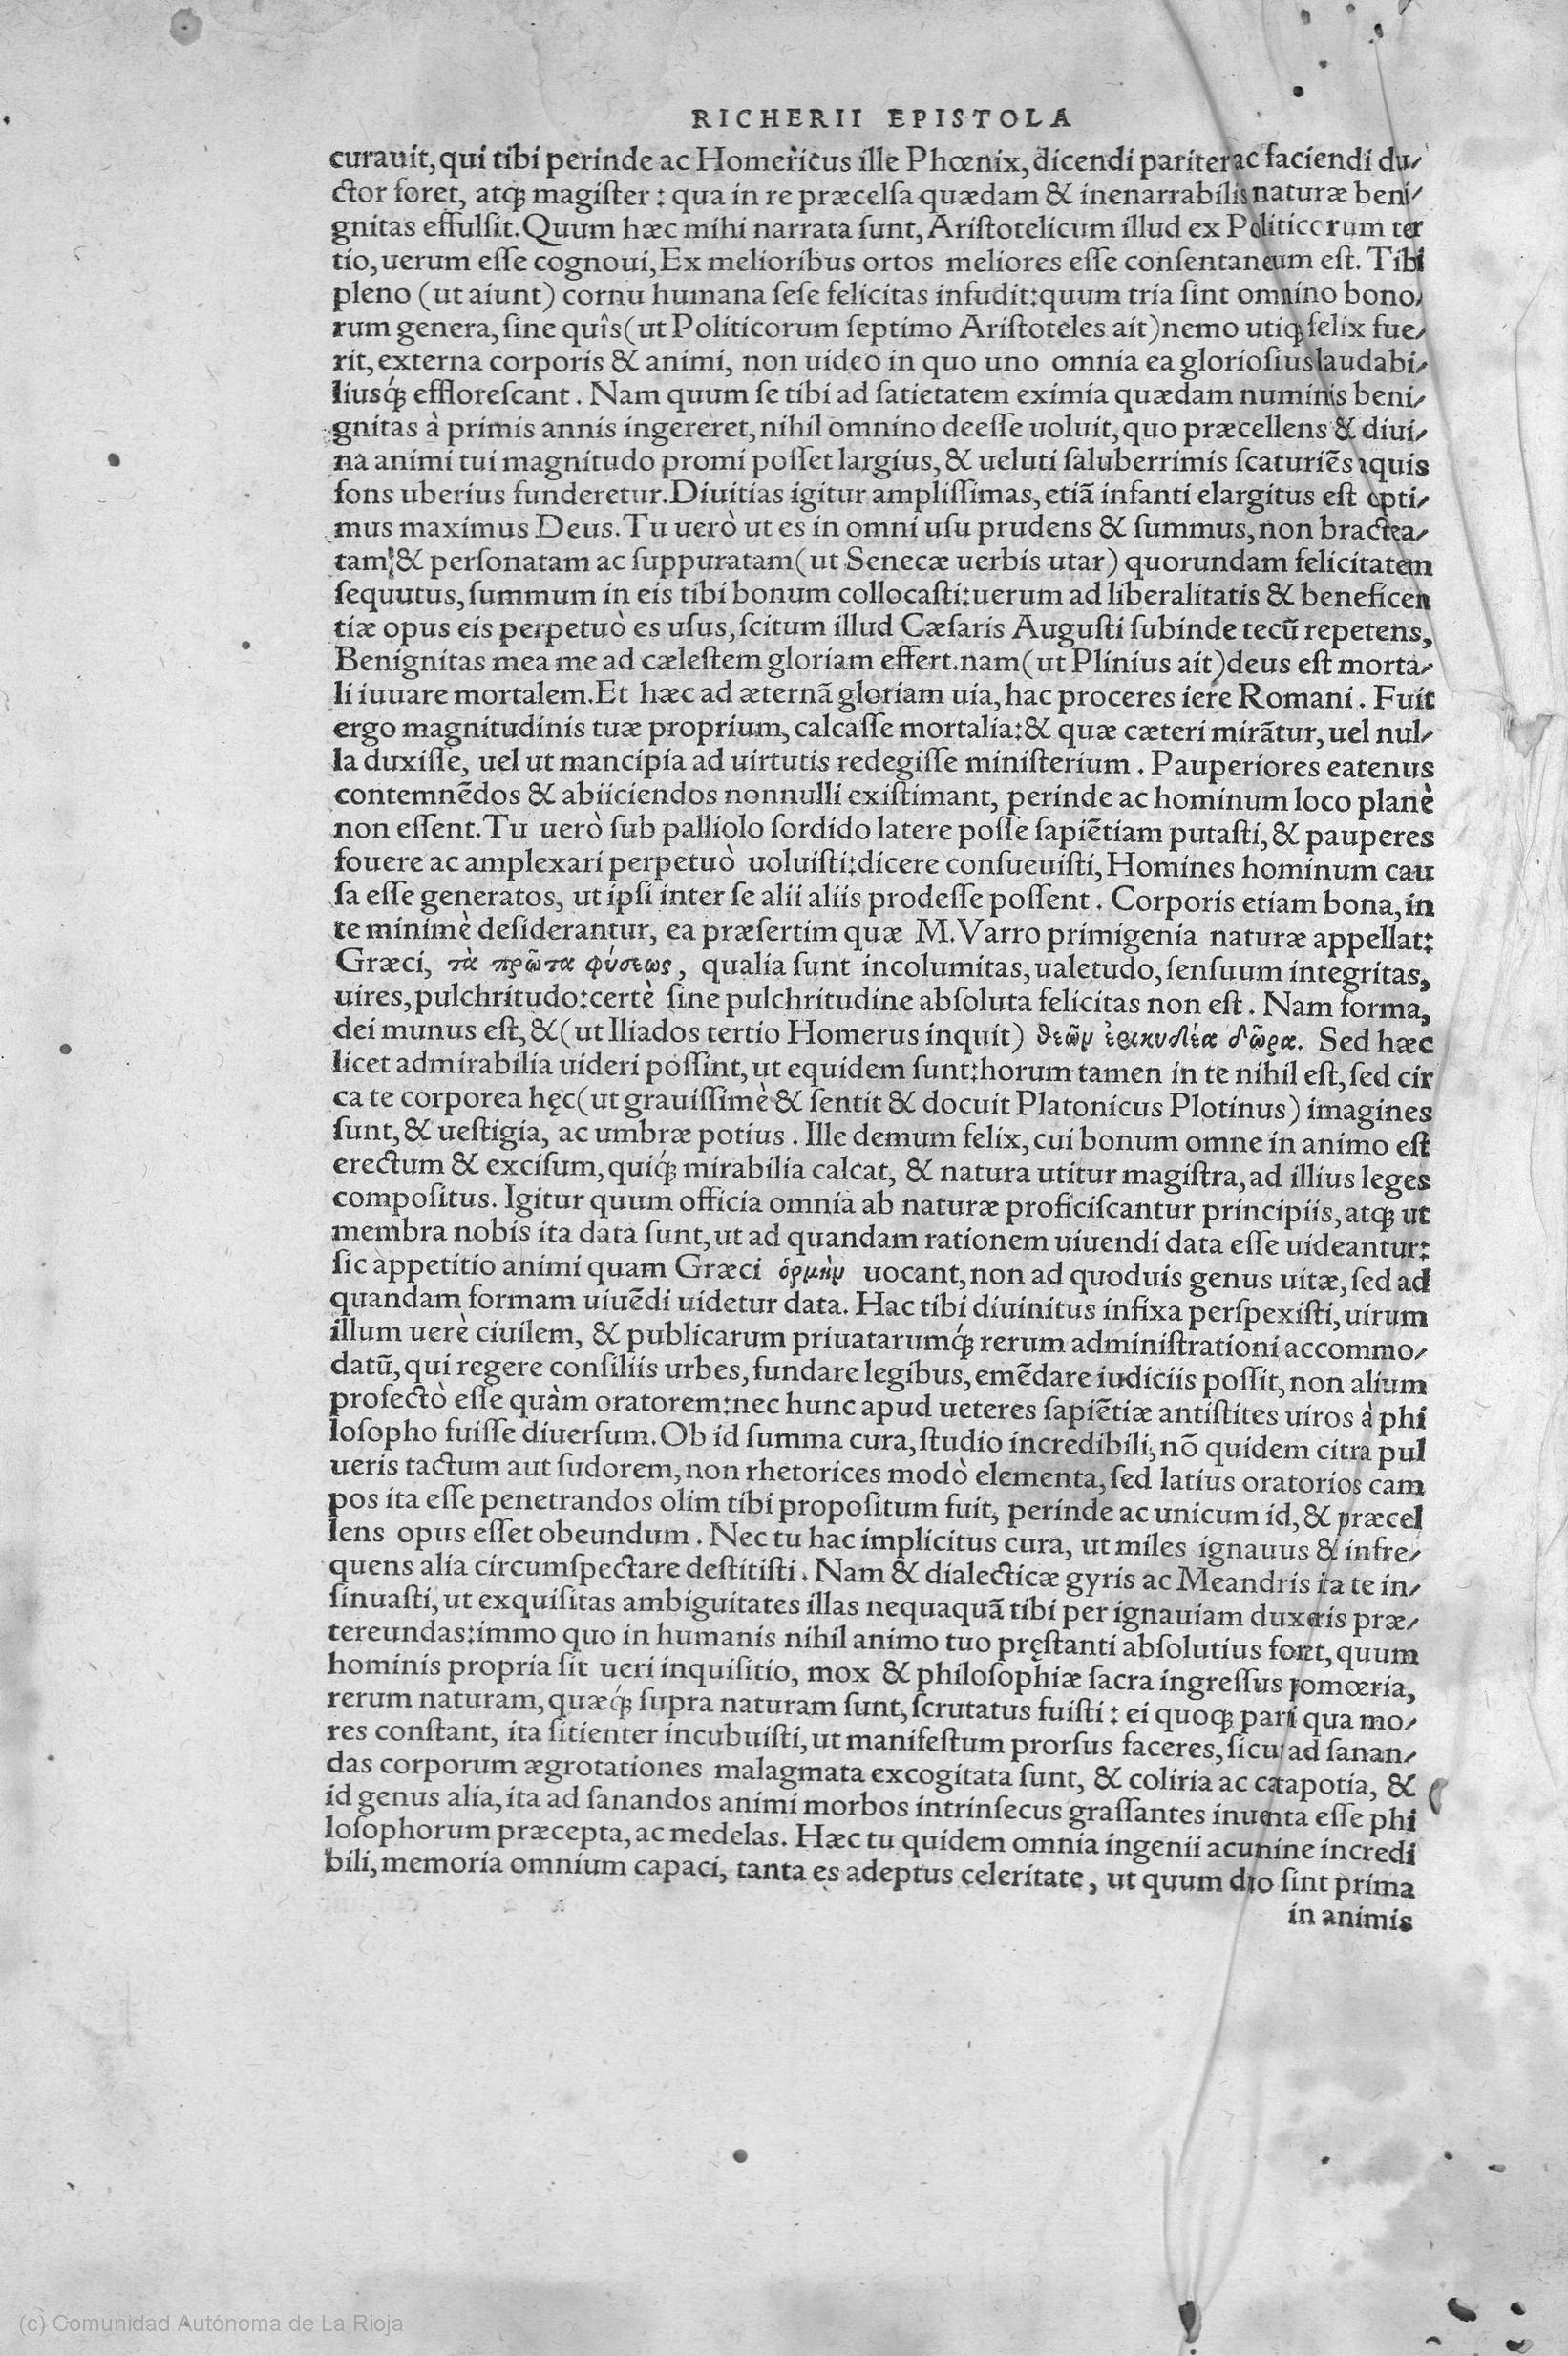 RICHERII EPISTOLA
curauit, qui tibi perinde ac Homericus ille Phœnix, dicendi pariter ac faciendi du⸗
ctor foret, atq; magiſter : qua in re præcelſa quædam & inenarrabilis naturæ beni⸗
gnitas effulſit. Quum hæc mihi narrata ſunt, Ariſtotelicum illud ex Politicorum ter
tio, uerum eſſe cognoui, Ex melioribus ortos meliores eſſe conſentaneum eſt. Tibi
pleno (ut aiunt) cornu humana ſeſe felicitas infudit: quum tria ſint omnino bono⸗
rum genera, ſine quîs (ut Politicorum ſeptimo Ariſtoteles ait) nemo utiq; felix fue⸗
rit, externa corporis & animi, non uideo in quo uno omnia ea glorioſius laudabi⸗
liusq́; effloreſcant . Nam quum ſe tibi ad ſatietatem eximia quædam numinis beni⸗
gnitas à primis annis ingereret, nihil omnino deeſſe uoluit, quo præcellens & diui⸗
na animi tui magnitudo promi poſſet largius, & ueluti ſaluberrimis ſcaturiẽs aquis
fons uberius funderetur. Diuitias igitur ampliſſimas, etiã infanti elargitus eſt opti⸗
mus maximus Deus. Tu uerò ut es in omni uſu prudens & ſummus, non bractea⸗
tam & perſonatam ac ſuppuratam (ut Senecæ uerbis utar) quorundam felicitatem
ſequutus, ſummum in eis tibi bonum collocaſti: uerum ad liberalitatis & beneficen
tiæ opus eis perpetuò es uſus, ſcitum illud Cæſaris Auguſti ſubinde tecũ repetens,
Benignitas mea me ad cæleſtem gloriam effert. nam (ut Plinius ait) deus eſt morta⸗
li iuuare mortalem. Et hæc ad æternã gloriam uia, hac proceres iere Romani . Fuit
ergo magnitudinis tuæ proprium, calcaſſe mortalia: & quæ cæteri mirãtur, uel nul⸗
la duxiſſe, uel ut mancipia ad uirtutis redegiſſe miniſterium . Pauperiores eatenus
contemnẽdos & abiiciendos nonnulli exiſtimant, perinde ac hominum loco planè
non eſſent. Tu uerò ſub palliolo ſordido latere poſſe ſapiẽtiam putaſti, & pauperes
fouere ac amplexari perpetuò uoluiſti: dicere conſueuiſti, Homines hominum cau
ſa eſſe generatos, ut ipſi inter ſe alii aliis prodeſſe poſſent . Corporis etiam bona, in
te minimè deſiderantur, ea præſertim quæ M. Varro primigenia naturæ appellat:
Græci, τὰ πρῶτα φύσεως, qualia ſunt incolumitas, ualetudo, ſenſuum integritas,
uires, pulchritudo: certè ſine pulchritudine abſoluta felicitas non eſt . Nam forma,
dei munus eſt, & (ut Iliados tertio Homerus inquit) θεῶν ἐρικυδέα δῶρα. Sed hæc
licet admirabilia uideri poſſint, ut equidem ſunt: horum tamen in te nihil eſt, ſed cir
ca te corporea hęc (ut grauiſſimè & ſentit & docuit Platonicus Plotinus) imagines
ſunt, & ueſtigia, ac umbræ potius . Ille demum felix, cui bonum omne in animo eſt
erectum & exciſum, quiq́; mirabilia calcat, & natura utitur magiſtra, ad illius leges
compoſitus. Igitur quum officia omnia ab naturæ proficiſcantur principiis, atq; ut
membra nobis ita data ſunt, ut ad quandam rationem uiuendi data eſſe uideantur:
ſic appetitio animi quam Græci ὁρμὴν uocant, non ad quoduis genus uitæ, ſed ad
quandam formam uiuẽdi uidetur data. Hac tibi diuinitus infixa perſpexiſti, uirum
illum uerè ciuilem, & publicarum priuatarumq́; rerum adminiſtrationi accommo⸗
datũ, qui regere conſiliis urbes, fundare legibus, emẽdare iudiciis poſſit, non alium
profectò eſſe quàm oratorem: nec hunc apud ueteres ſapiẽtiæ antiſtites uiros à phi
loſopho fuiſſe diuerſum. Ob id ſumma cura, ſtudio incredibili, nõ quidem citra pul
ueris tactum aut ſudorem, non rhetorices modò elementa, ſed latius oratorios cam
pos ita eſſe penetrandos olim tibi propoſitum fuit, perinde ac unicum id, & præcel
lens opus eſſet obeundum . Nec tu hac implicitus cura, ut miles ignauus & infre⸗
quens alia circumſpectare deſtitiſti . Nam & dialecticæ gyris ac Meandris ita te in⸗
ſinuaſti, ut exquiſitas ambiguitates illas nequaquã tibi per ignauiam duxeris præ⸗
tereundas: immo quo in humanis nihil animo tuo pręſtanti abſolutius foret, quum
hominis propria ſit ueri inquiſitio, mox & philoſophiæ ſacra ingreſſus pomœria,
rerum naturam, quæq́; ſupra naturam ſunt, ſcrutatus fuiſti : ei quoq; pari qua mo⸗
res conſtant, ita ſitienter incubuiſti, ut manifeſtum prorſus faceres, ſicut ad ſanan⸗
das corporum ægrotationes malagmata excogitata ſunt, & coliria ac catapotia, &
id genus alia, ita ad ſanandos animi morbos intrinſecus graſſantes inuenta eſſe phi
loſophorum præcepta, ac medelas. Hæc tu quidem omnia ingenii acumine incredi
bili, memoria omnium capaci, tanta es adeptus celeritate, ut quum duo ſint prima
in animis
(c) Comunidad Autónoma de La Rioja